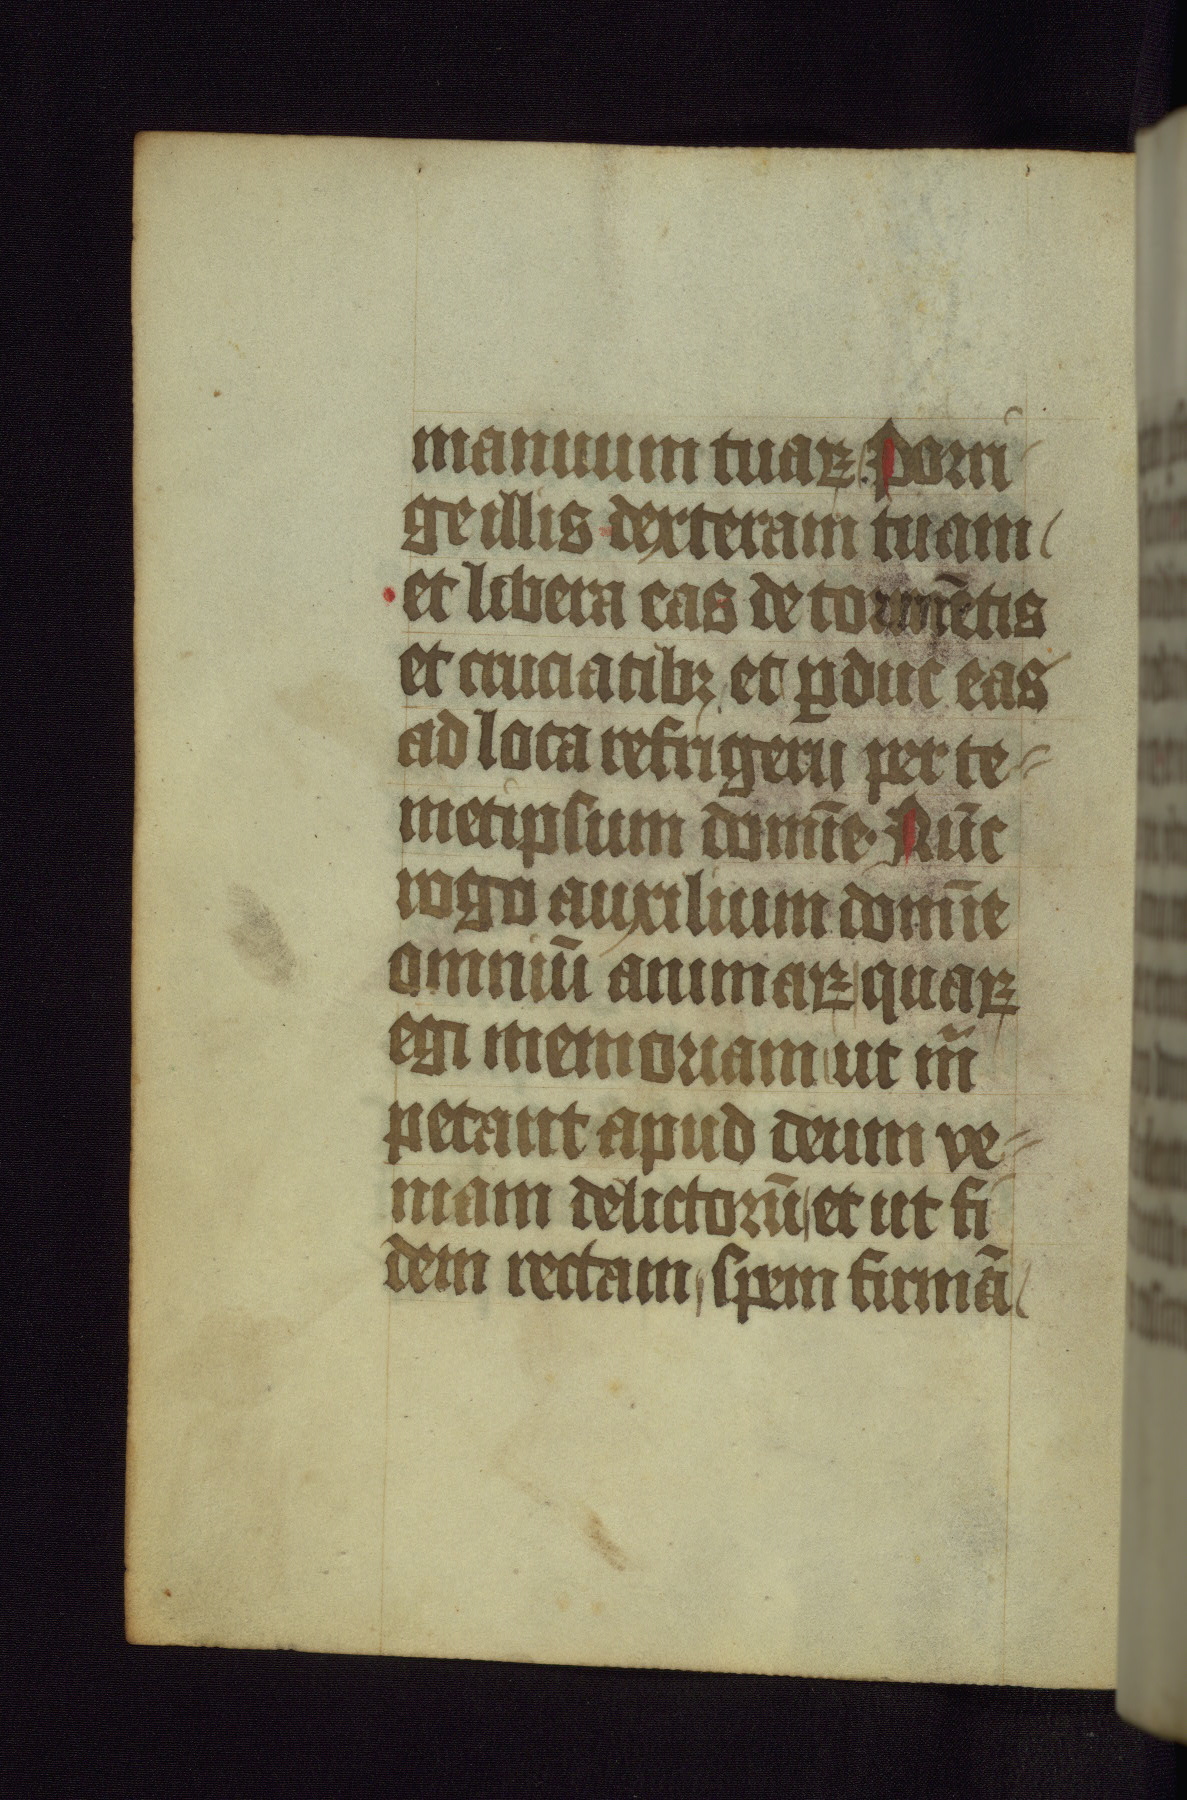 manuum tuaꝝ. Porri
ge illis dexteram tuam
et libera eas de tormētis
et cruciatibꝫ et ꝑduc eas
ad loca refrigerii per te=
metipsum domīe. Nūc
rogo auxilium domīe
omniū animaꝝ quaꝝ
egi memoriam ut m̄
petant apud deum ve=
niam delictorū et ut fi
dem rectam, spem firmā